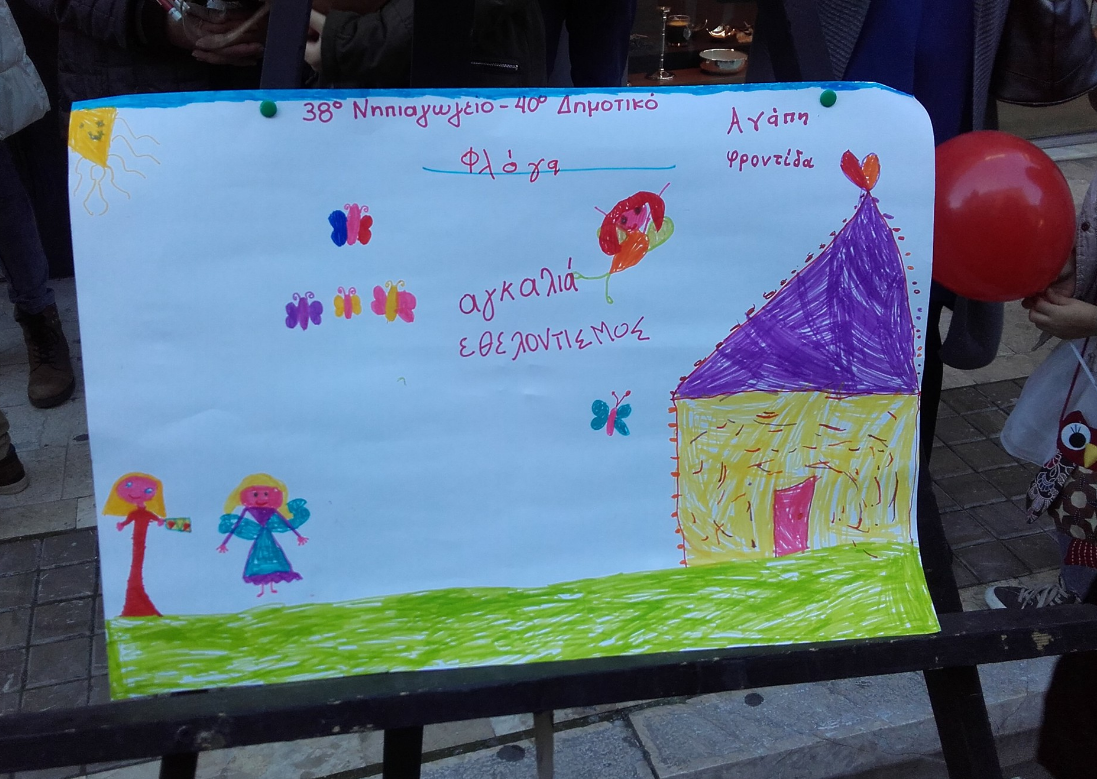 38ο Νηπιαγωγείο - 40ο Δημοτικό
Φλόγα
Αγάπη
φροντίδα
αγκαλιά
εθελοντισμος